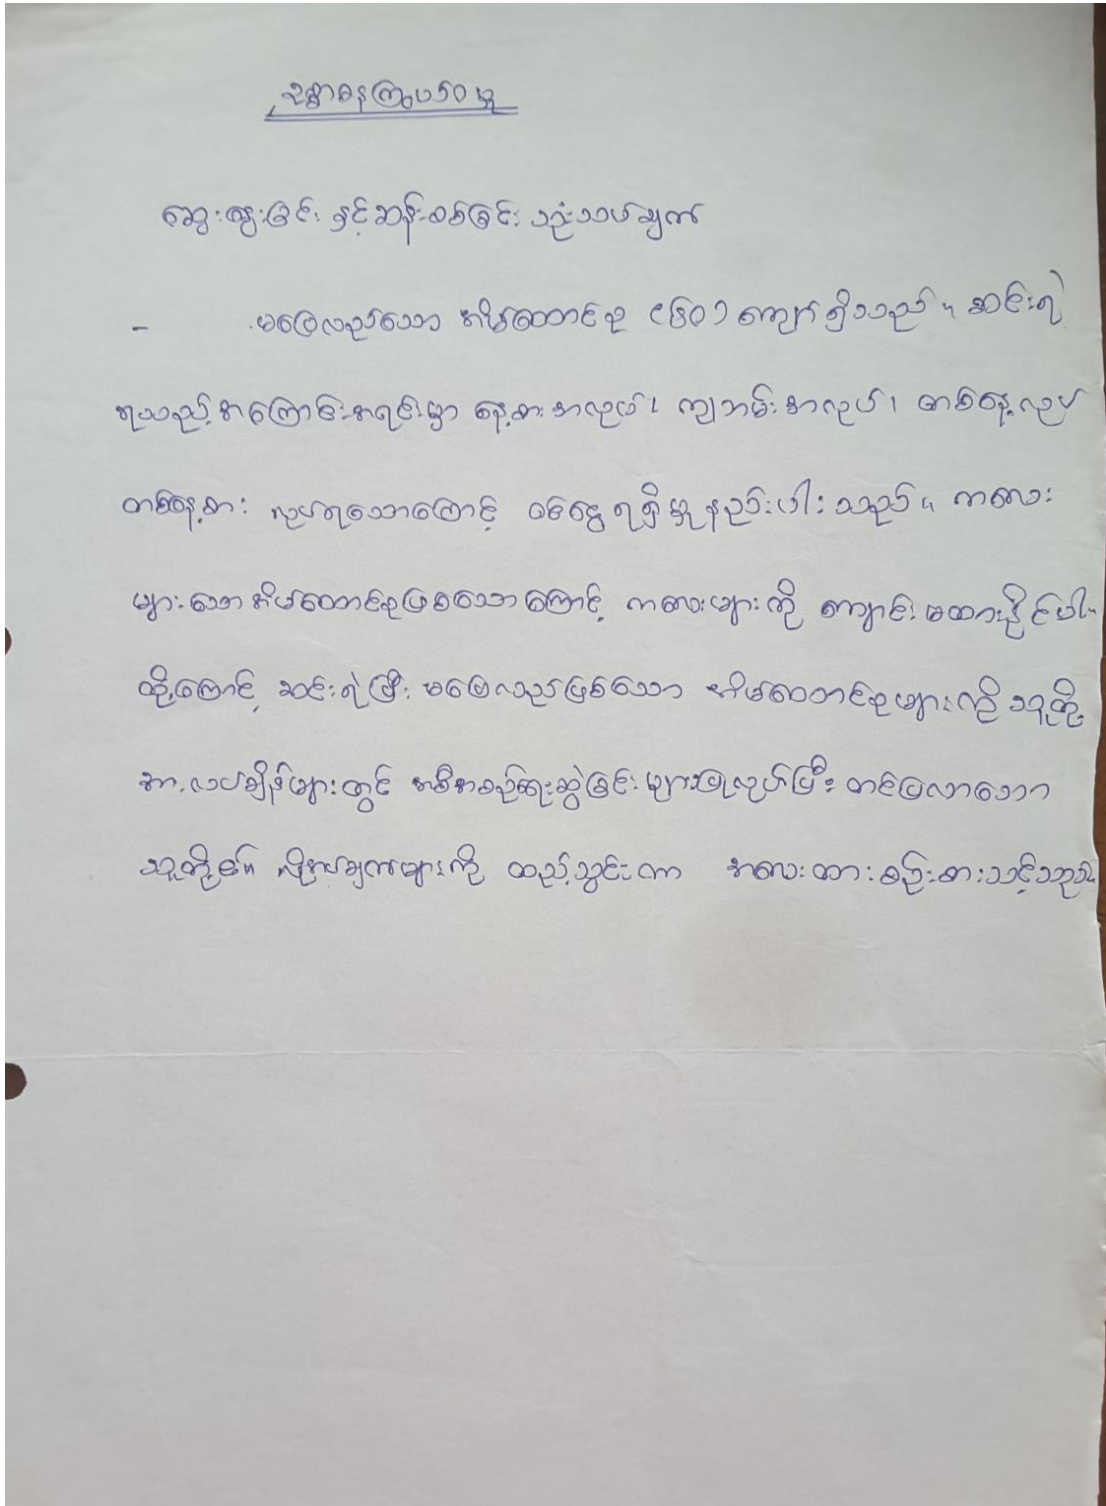 ဥစ္စာဓနကြွယ်ဝမှု
ဆွေးနွေးခြင်း နှင့်ဆန်းစစ်ခြင်း သုံးသပ်ချက်
- မပြေလည်သော အိမ်ထောင်စု (၆၀) ကျော် ရှိသည်။ ဆင်းရဲ
ရသည့်အကြောင်းအရင်းမှာ နေ့စားအလုပ်၊ ကျဘမ်းအလုပ်၊ တစ်နေ့လုပ်
တစ်နေ့စား လုပ်ရသောကြောင့် ဝင်ငွေ ရရှိမှု နည်းပါးသည်။ ကလေး
များသော အိမ်ထောင်စုဖြစ်သောကြောင့် ကလေးများကို ကျောင်းမထားနိုင်ပါ။
ထို့ကြောင့် ဆင်းရဲပြီး မပြေလည်ဖြစ်သော အိမ်ထောင်စုများကို သူတို့
အားလပ်ချိန်များတွင် အစီအစဉ်ရေးဆွဲခြင်းများပြုလုပ်ပြီး တင်ပြလာသော
သူတို့၏ လိုအပ်ချက်များကို ထည့်သွင်းကာ အလေးထားစဉ်းစားသင့်သည်။